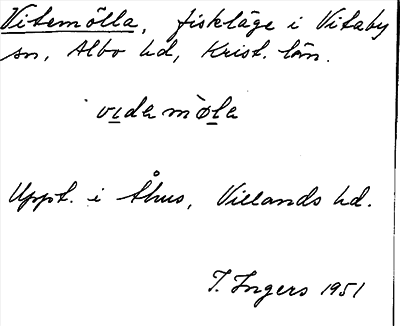 Vitemölla, fiskläge i Vitaby
sn, Albo hd, Krist. län.
vidamø̀la
Uppt. i Åhus, Villands hd.
I. Ingers 1951